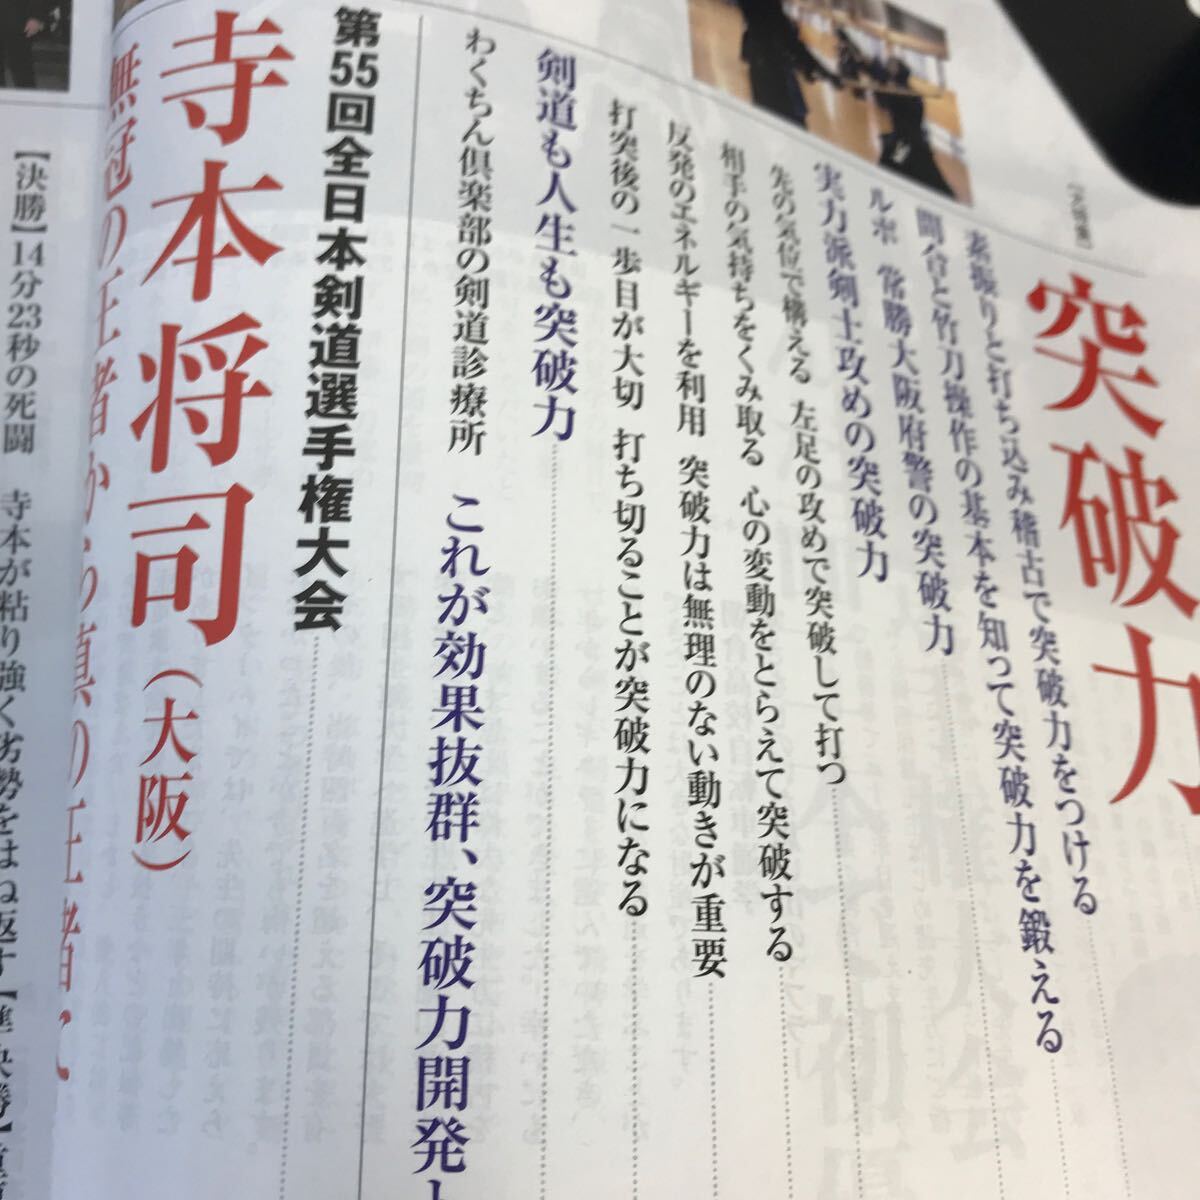 【大特集】
突破力
素振りと打ち込み稽古で突破力をつける
間合と竹刀操作の基本を知って突破力を鍛える
ルポ 常勝大阪府警の突破力
実力派剣士攻めの突破力
先の気位で構える 左足の攻めで突破して打つ
相手の気持ちをくみ取る 心の変動をとらえて突破する
反発のエネルギーを利用 突破力は無理のない動きが重要
打突後の一歩目が大切 打ち切ることが突破力になる
剣道も人生も突破力
わくちん倶楽部の剣道診療所 これが効果抜群、突破力開発ト
第55回全日本剣道選手権大会
寺本将司(大阪)
無冠の王者から真の王者に
【決勝】14分23秒の死闘 寺本が粘り強く劣勢をはね返す【準決勝】